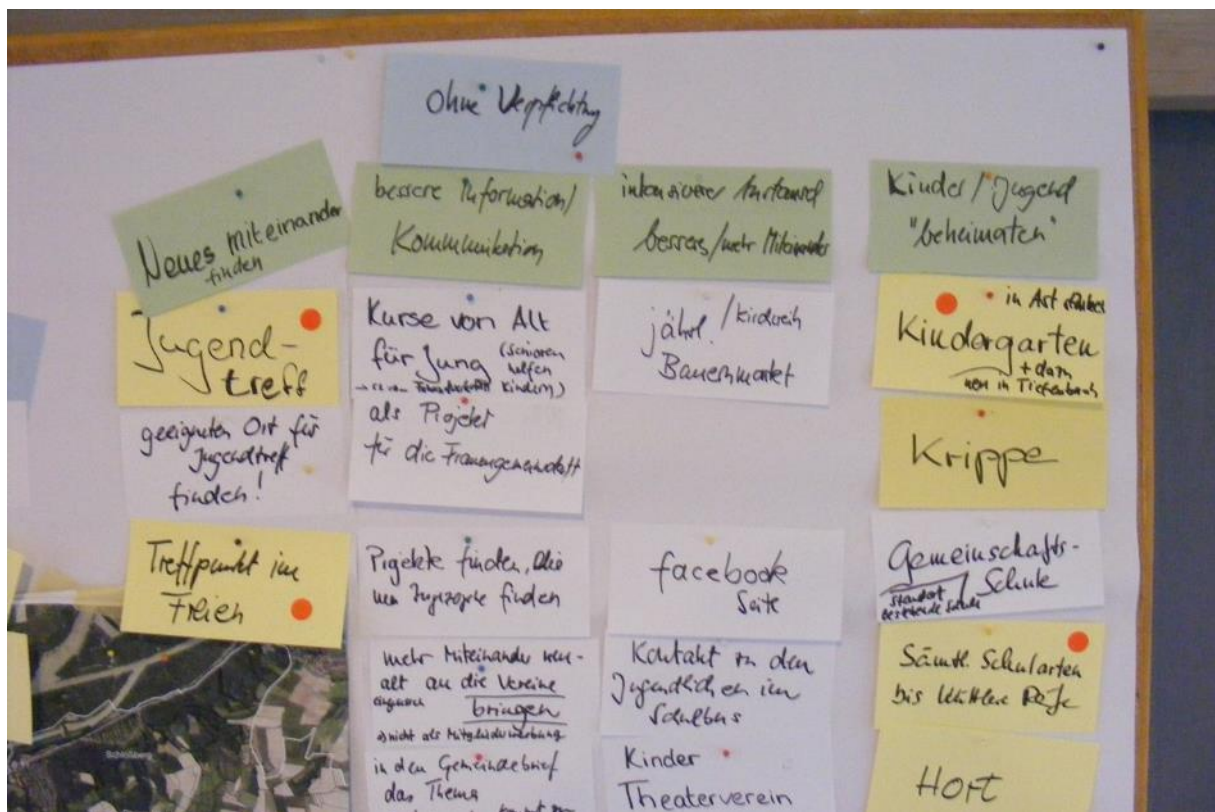 ohne Verpflichtung
Neues Miteinander
finden
Jugend-
treff
geeigneten Ort für
Jugendtreff
finden!
Treffpunkt im
Freien
bessere Information/
Kommunikation
Kurse von Alt
für Jung (Senioren
helfen
Kindern)
als Projekt
für die Frauengemeinschaft
Projekte finden, die
neu Zugezogene finden
mehr Miteinander neu-
alt an die Vereine
bringen
nicht als Mitgliederwerbung
in den Gemeindebrief
das Thema
intensiverer Austausch
besseres/mehr Miteinander
jährl. /Kirchweih
Bauernmarkt
facebook
Seite
Kontakt zu den
Jugendlichen im
Schulbus
Kinder
Theaterverein
Kinder/Jugend
"beheimaten"
in Ast
Kindergarten
+ dazu
neu in Tiefenbach
Krippe
Gemeinschafts-
Schule
Standort
bestehende Schule
Sämtl. Schularten
bis Mittlere Reife
Hort